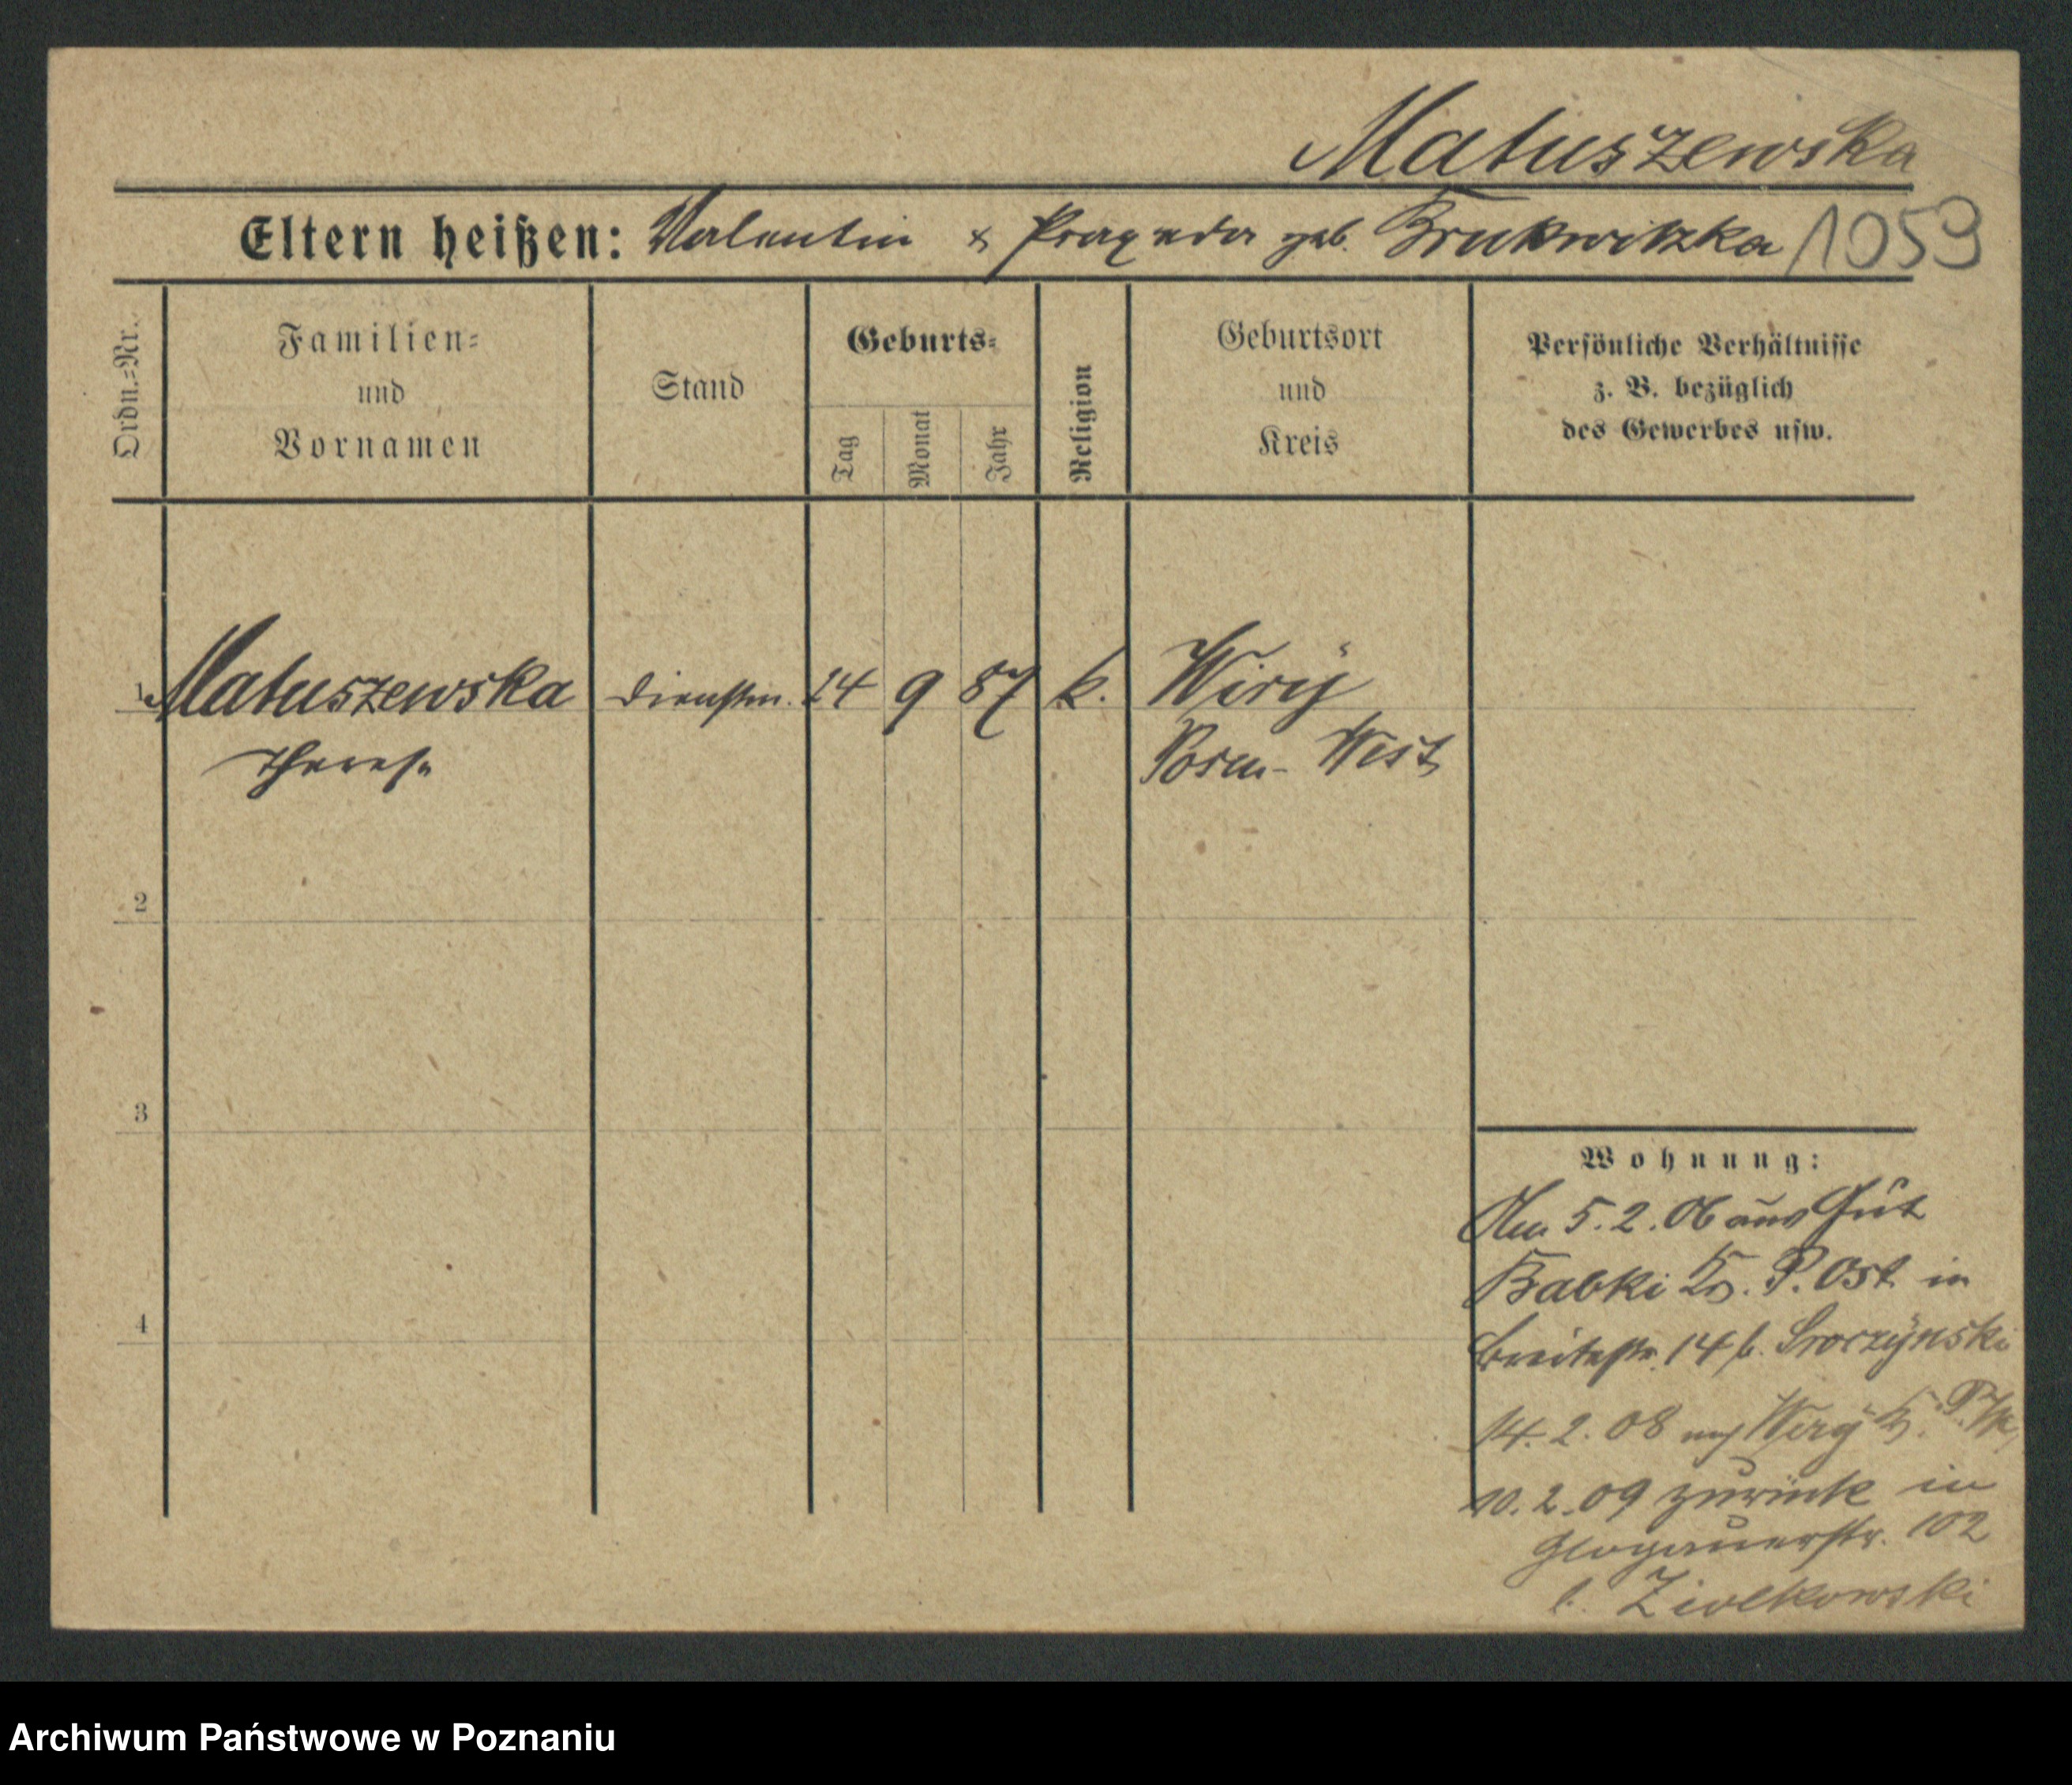 Matuszewska
Eltern heißen: Valentin & Praxeda geb. Brukwitzka 1059
Ordn.-Nr.
Familien-
und
Vornamen
Stand
Geburts-
Tag
Monat
Jahr
Religion
Geburtsort
und
Kreis
Persönliche Verhältnisse
z. B. bezüglich
des Gewerbes usw.
1 Matuszewska Dienstm. 14 9 87 k. Wiry
Therese Posen-West
2
3
4
Wohnung:
Am 5.2.06 aus Gut
Babki Kr. P. Ost in
Breitestr. 14 b. Sroczynski
14.2.08 Wiry Kr. P.
10.2.09 zurück in
Glogauerstr. 102
b. Ziolkowski
Archiwum Państwowe w Poznaniu